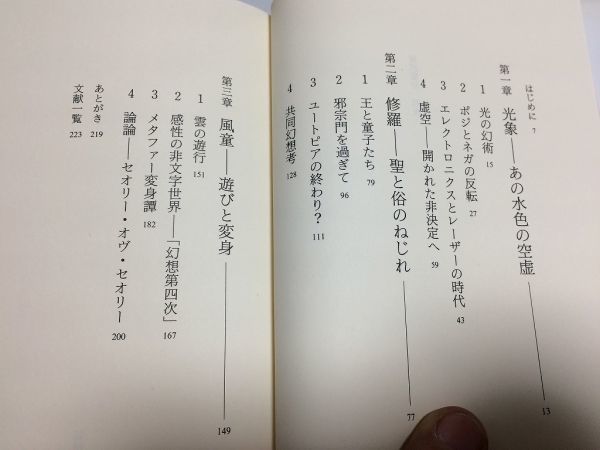 はじめに 7
第一章 光象――あの水色の空虚 13
1 光の幻術 15
2 ポジとネガの反転 27
3 エレクトロニクスとレーザーの時代 43
4 虚空――開かれた非決定へ 59
第二章 修羅――聖と俗のねじれ 77
1 王と童子たち 79
2 邪宗門を過ぎて 96
3 ユートピアの終わり? 111
4 共同幻想考 128
第三章 風童――遊びと変身 149
1 雲の遊行 151
2 感性の非文字世界――「幻想第四次」 167
3 メタファー変身譚 182
4 論論――セオリー・オヴ・セオリー 200
あとがき 219
文献一覧 223